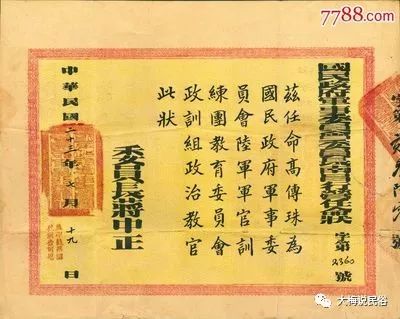 7788.com
國民政府軍事委員會委員長南昌行營任狀
字第2360號
茲任命高傳珠為
國民政府軍事委
員會陸軍軍官訓
練團教育委員會
政訓組政治教官
此狀
委員長蔣中正
中華民國二十三年七月十九日
大海说民俗